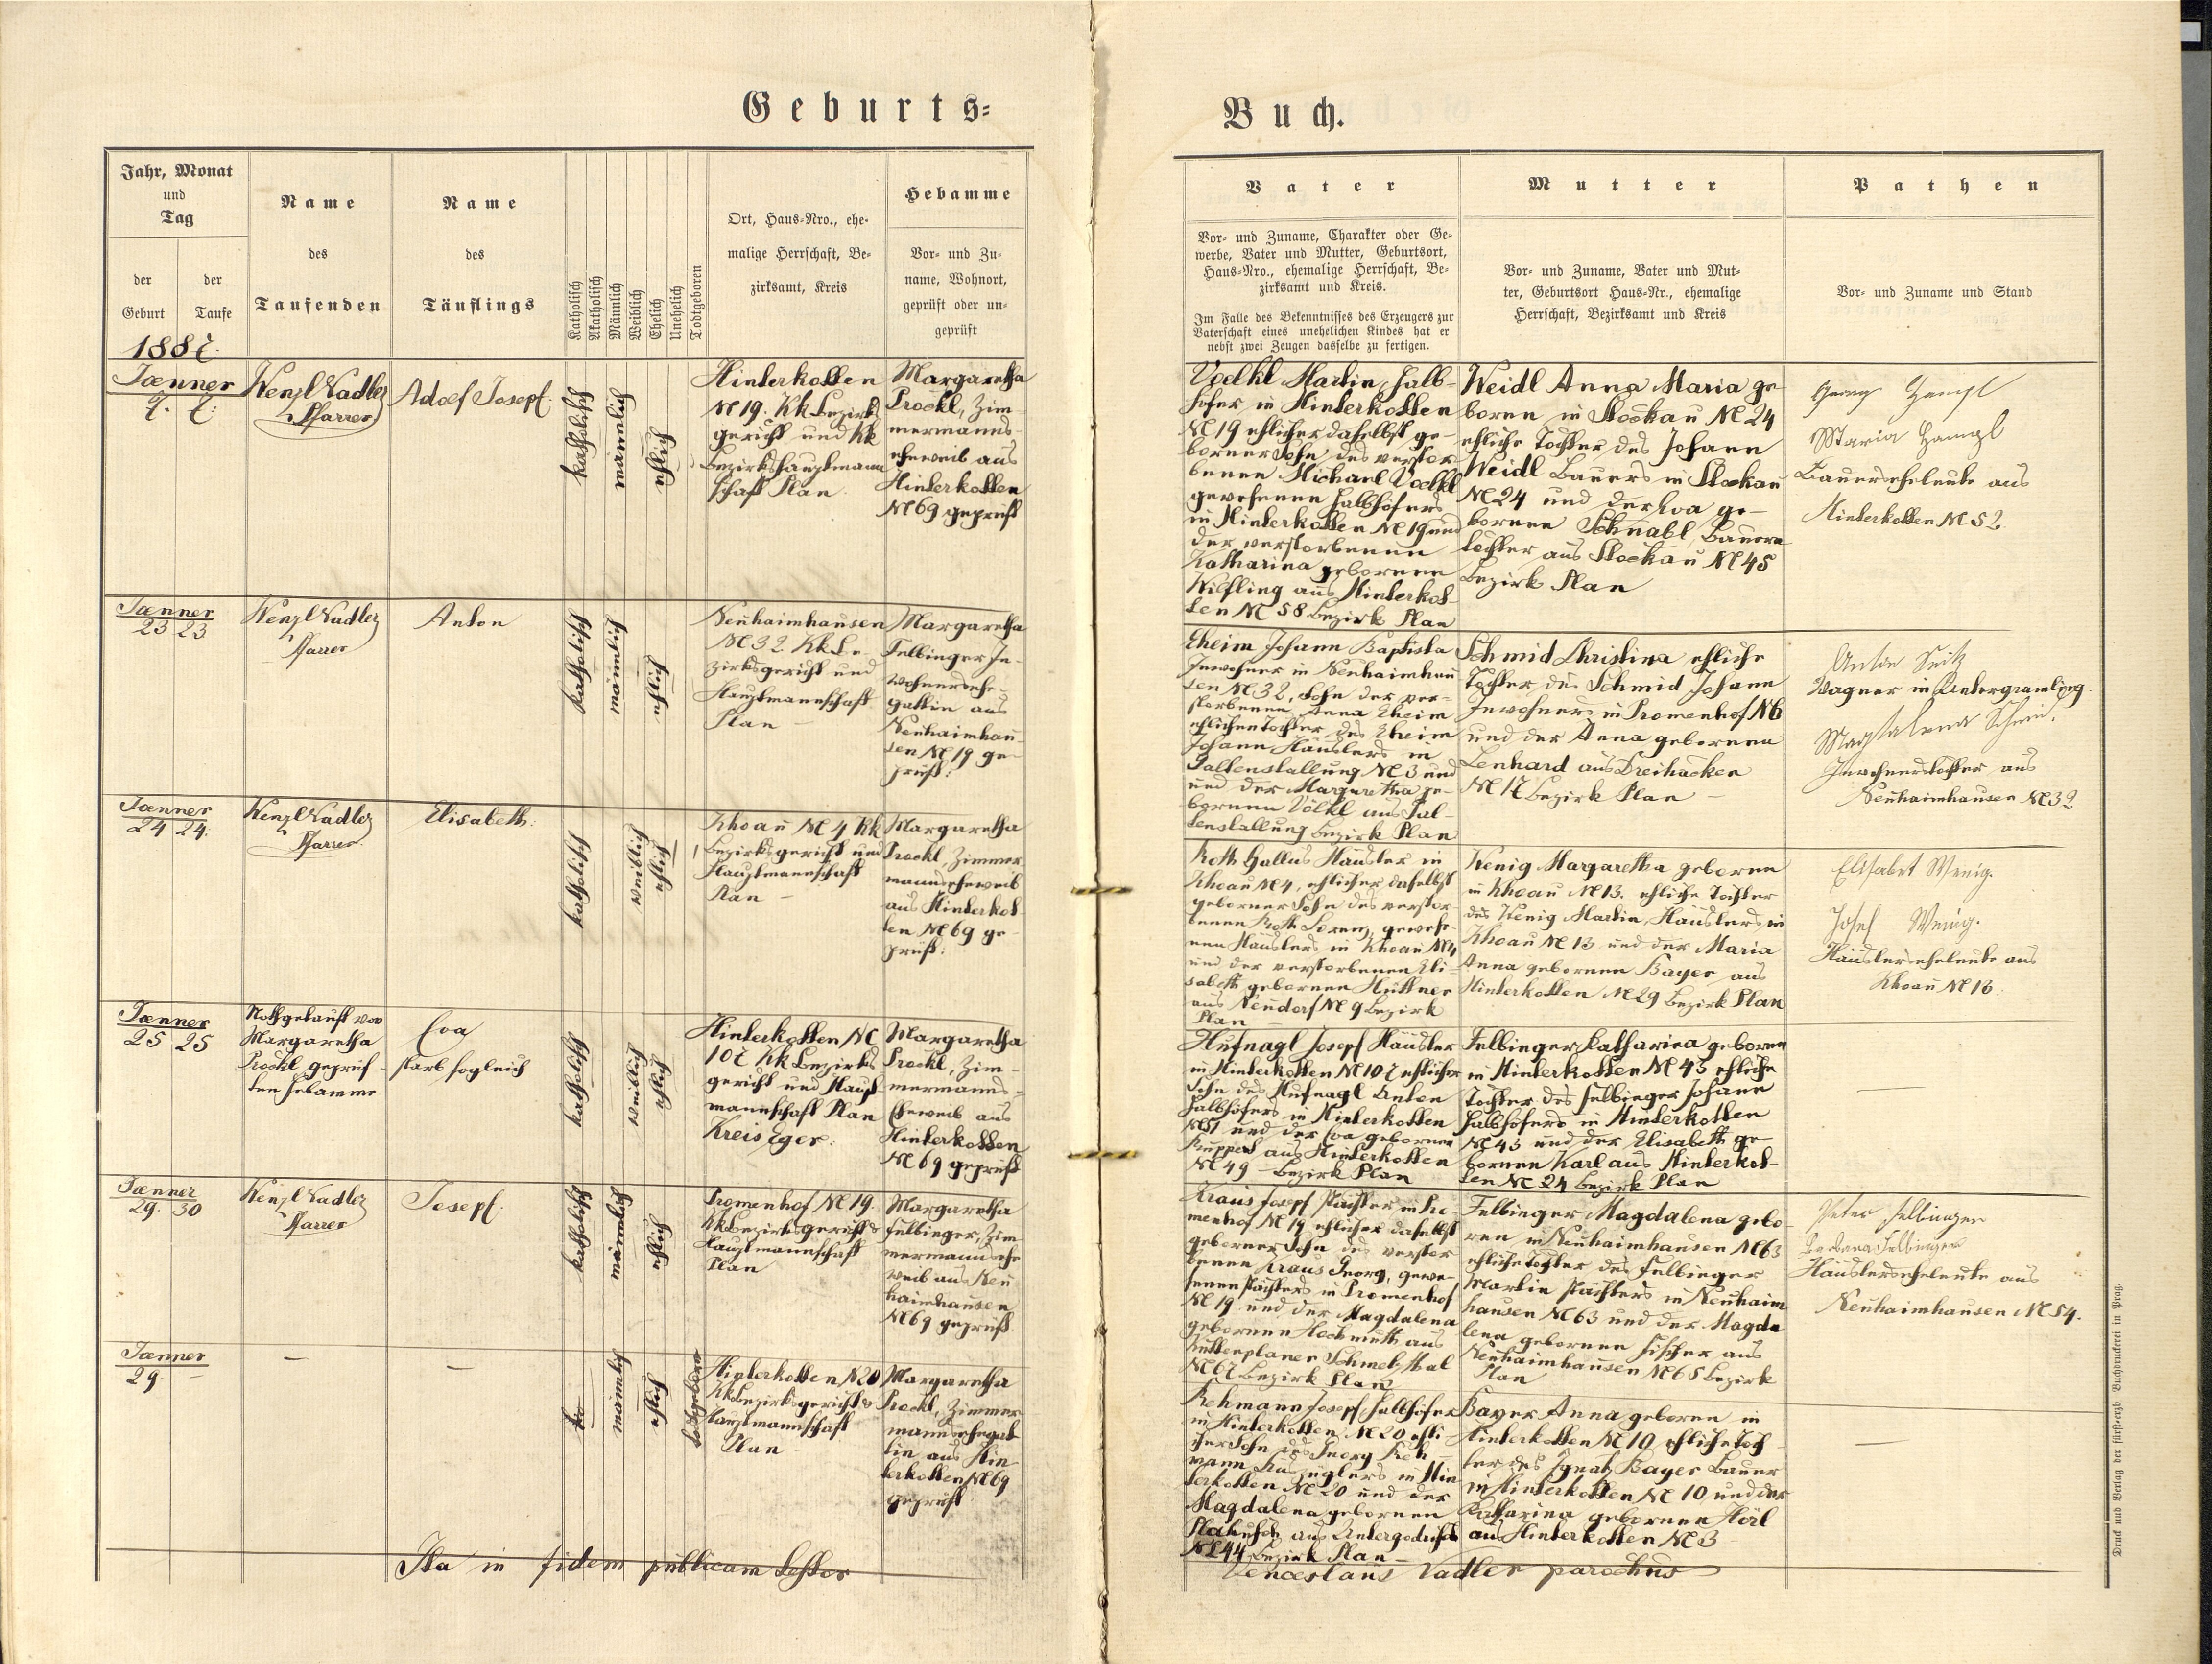 Geburts-
Buch.
Jahr, Monat
und
Tag
der
Geburt
der
Taufe
Name
des
Taufenden
Name
des
Täuflings
Katholisch
Akatholisch
Männlich
Weiblich
Ehelich
Unehelich
Todtgeboren
Ort, Haus-Nro., ehe-
malige Herrschaft, Be-
zirksamt, Kreis
Hebamme
Vor- und Zu-
name, Wohnort,
geprüft oder un-
geprüft
Vater
Vor- und Zuname, Charakter oder Ge-
werbe, Vater und Mutter, Geburtsort,
Haus-Nro., ehemalige Herrschaft, Be-
zirksamt und Kreis.
Im Falle des Bekenntnisses des Erzeugers zur
Vaterschaft eines unehelichen Kindes hat er
nebst zwei Zeugen dasselbe zu fertigen.
Mutter
Vor- und Zuname, Vater und Mut-
ter, Geburtsort Haus-Nr., ehemalige
Herrschaft, Bezirksamt und Kreis
Pathen
Vor- und Zuname und Stand
Jænner
7. 7.
Wenzl Nadler
Pfarrer
Adolf Josef
katholisch
männlich
ehlich
Hinterkotten
N 19. KK Bezirks
gericht und KK
Bezirkshauptmann
schaft Plan
Margaretha
Prockl, Zim-
mermanns-
eheweib aus
Hinterkotten
N 69 geprüft
Voelkl Martin, Halb-
höfer in Hinterkotten
N 19 ehlicher daselbst ge-
borner Sohn des verstor
benen Michael Voelkl
gewesenen Halbhöfers
in Hinterkotten N 19 und
der verstorbenen
Katharina gebornen
aus Hinterkot-
ten N 58 Bezirk Plan
Weidl Anna Maria ge
boren in Stockau N 24
ehliche Tochter des Johann
Weidl Bauers in Stockau
N 24 und der Eva ge-
bornen Schnabl, Bauern
tochter aus Stockau N 45
Bezirk Plan
Georg
Maria
Bauerseheleute aus
Hinterkotten N 52
Jænner
23 23
Wenzl Nadler
Pfarrer
Anton
katholisch
männlich
ehlich
Neuhaimhausen
N 32 KK Be-
zirksgericht und
Hauptmannschaft
Plan –
Margaretha
Felbinger In-
wohnersehe-
gattin aus
Neuhaimhau-
sen N 19 ge-
prüft.
Eheim Johann Baptista
Inwohner in Neuhaimhau
sen N 32, Sohn der ver-
storbenen Anna Eheim
ehlichen Tochter des Eheim
Johann Häuslers in
N 3 und
und der Margaretha ge-
bornen Völkl aus
Bezirk Plan
Schmid Christina ehliche
Tochter des Schmid Johann
Inwohners in Promenhof N 6
und der Anna gebornen
Lenhard aus Dreihacken
N 17 Bezirk Plan –
Anton Seitz
Wagner in Untergramling
Magdalena Schmid
Inwohnerstochter aus
Neuhaimhausen N 32
Jænner
24 24.
Wenzl Nadler
Pfarrer
Elisabeth.
katholisch
weiblich
ehlich
Khoau N 4 KK
Bezirksgericht und
Hauptmannschaft
Plan –
Margaretha
Prockl, Zimmer
mannseheweib
aus Hinterkot
ten N 69 ge-
prüft.
Roth Gallus Häusler in
Khoau N 4, ehlicher daselbst
geborner Sohn des verstor-
benen Roth Lorenz, gewese-
nen Häuslers in Khoau N 4
und der verstorbenen Eli-
sabeth gebornen Hüttner
aus Neudorf N 9 Bezirk
Plan –
Wenig Margaretha geboren
in Khoau N 13. ehliche Tochter
des Wenig Martin, Häuslers in
Khoau N 13 und der Maria
Anna gebornen Bayer aus
Hinterkotten N 29 Bezirk Plan
Elisabet Wenig.
Josef Wenig.
Häuslerseheleute aus
Khoau N 13.
Jænner
25 25
Nothgetauft von
Margaretha
Prockl geprüf-
ten Hebamme
Eva
starb sogleich
katholisch
weiblich
ehlich
Hinterkotten N
107 KK Bezirks
gericht und Haupt
mannschaft Plan
Kreis Eger.
Margaretha
Prockl, Zim-
mermanns-
Eheweib aus
Hinterkotten
N 69 geprüft
Hufnagl Josef Häusler
in Hinterkotten N 107 ehlicher
Sohn des Hufnagl Anton
Halbhöfers in Hinterkotten
und der Eva gebornen
Ruppert aus Hinterkotten
N 49 – Bezirk Plan
Felbinger Katharina geboren
in Hinterkotten N 43 ehliche
Tochter des Felbinger Johann
Halbhöfers in Hinterkotten
N 43 und der Elisabeth ge-
bornen Karl aus Hinterkot-
ten N 24 Bezirk Plan
Jænner
29. 30
Wenzl Nadler
Pfarrer
Josef.
katholisch
männlich
ehlich
Promenhof N 19.
KK Bezirksgericht &
Hauptmannschaft
Plan
Margaretha
Felbinger, Zim-
mermannsehe
weib aus Neu
haimhausen
N 69 geprüft
Kraus Josef Pächter in Pro-
menhof N 19 ehlicher daselbst
geborner Sohn des verstor
benen Kraus Georg, gewe-
senen Pächters in Promenhof
N 19 und der Magdalena
gebornen Hochmuth aus
Kuttenplaner Schmelzthal
N 67 Bezirk Plan
Felbinger Magdalena gebo-
ren in Neuhaimhausen N 63
ehliche Tochter des Felbinger
Martin Pächters in Neuhaim
hausen N 63 und der Magda
lena gebornen Fischer aus
Neuhaimhausen N 65 Bezirk
Plan
Peter Felbinger
Barbara Felbinger
Häuslerseheleute aus
Neuhaimhausen N 54.
Jænner
29. –
–
–
männlich
ehlich
todtgeboren
Hinterkotten N 20
KK Bezirksgericht &
Hauptmannschaft
Plan
Margaretha
Prockl, Zimmer
mannsehegat
tin aus Hin
terkotten N 69
geprüft
Rehmann Josef Halbhöfer
in Hinterkotten N 20 ehli-
cher Sohn des Georg Reh-
mann Auszüglers in Hin
terkotten N 20 und der
Magdalena gebornen
aus Untergodrisch
N 44 Bezirk Plan –
Bayer Anna geboren in
Hinterkotten N 10 ehliche Toch-
ter des Ignatz Bayer Bauer
in Hinterkotten N 10 und der
Katharina gebornen Hörl
aus Hinterkotten N 3
Ita in fidem publicam testor
Venceslaus Nadler parochus
Druck und Verlag der fürsterzb. Buchdruckerei in Prag.